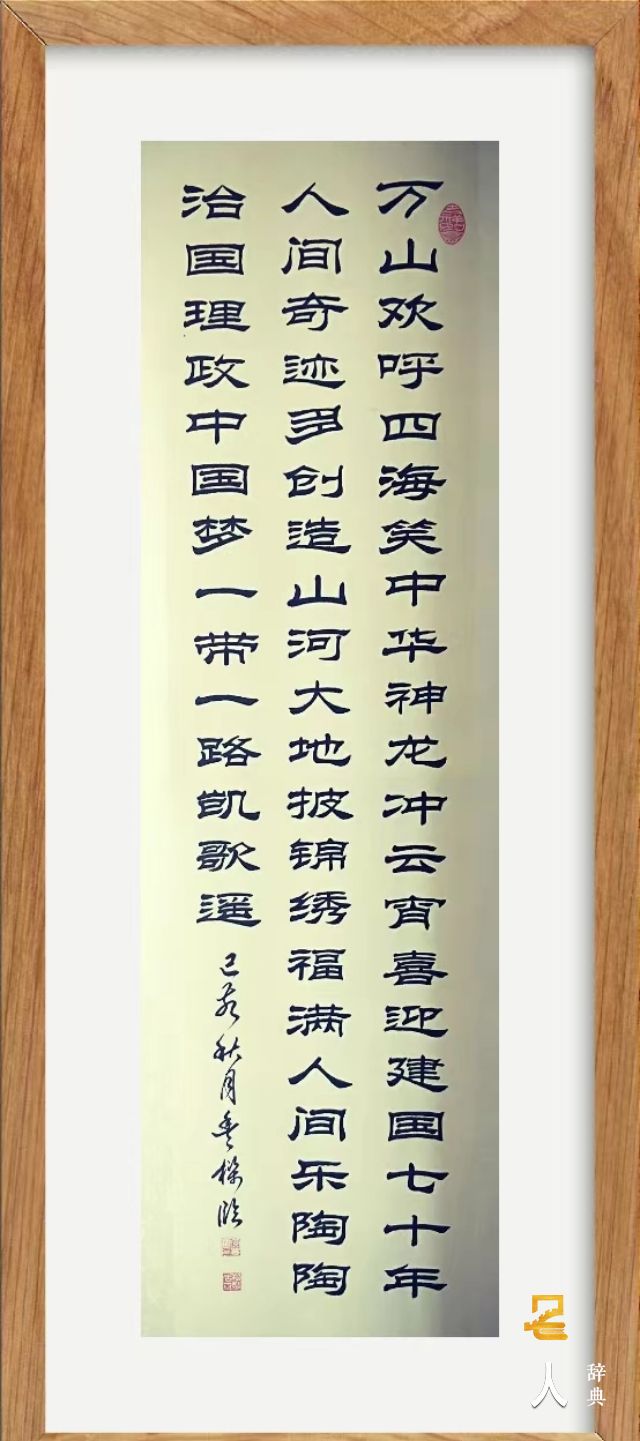 万山欢呼四海笑中华神龙冲云宵喜迎建国七十年
人间奇迹多创造山河大地披锦绣福满人间乐陶陶
治国理政中国梦一带一路凯歌遥
己亥秋月
名人
辞典